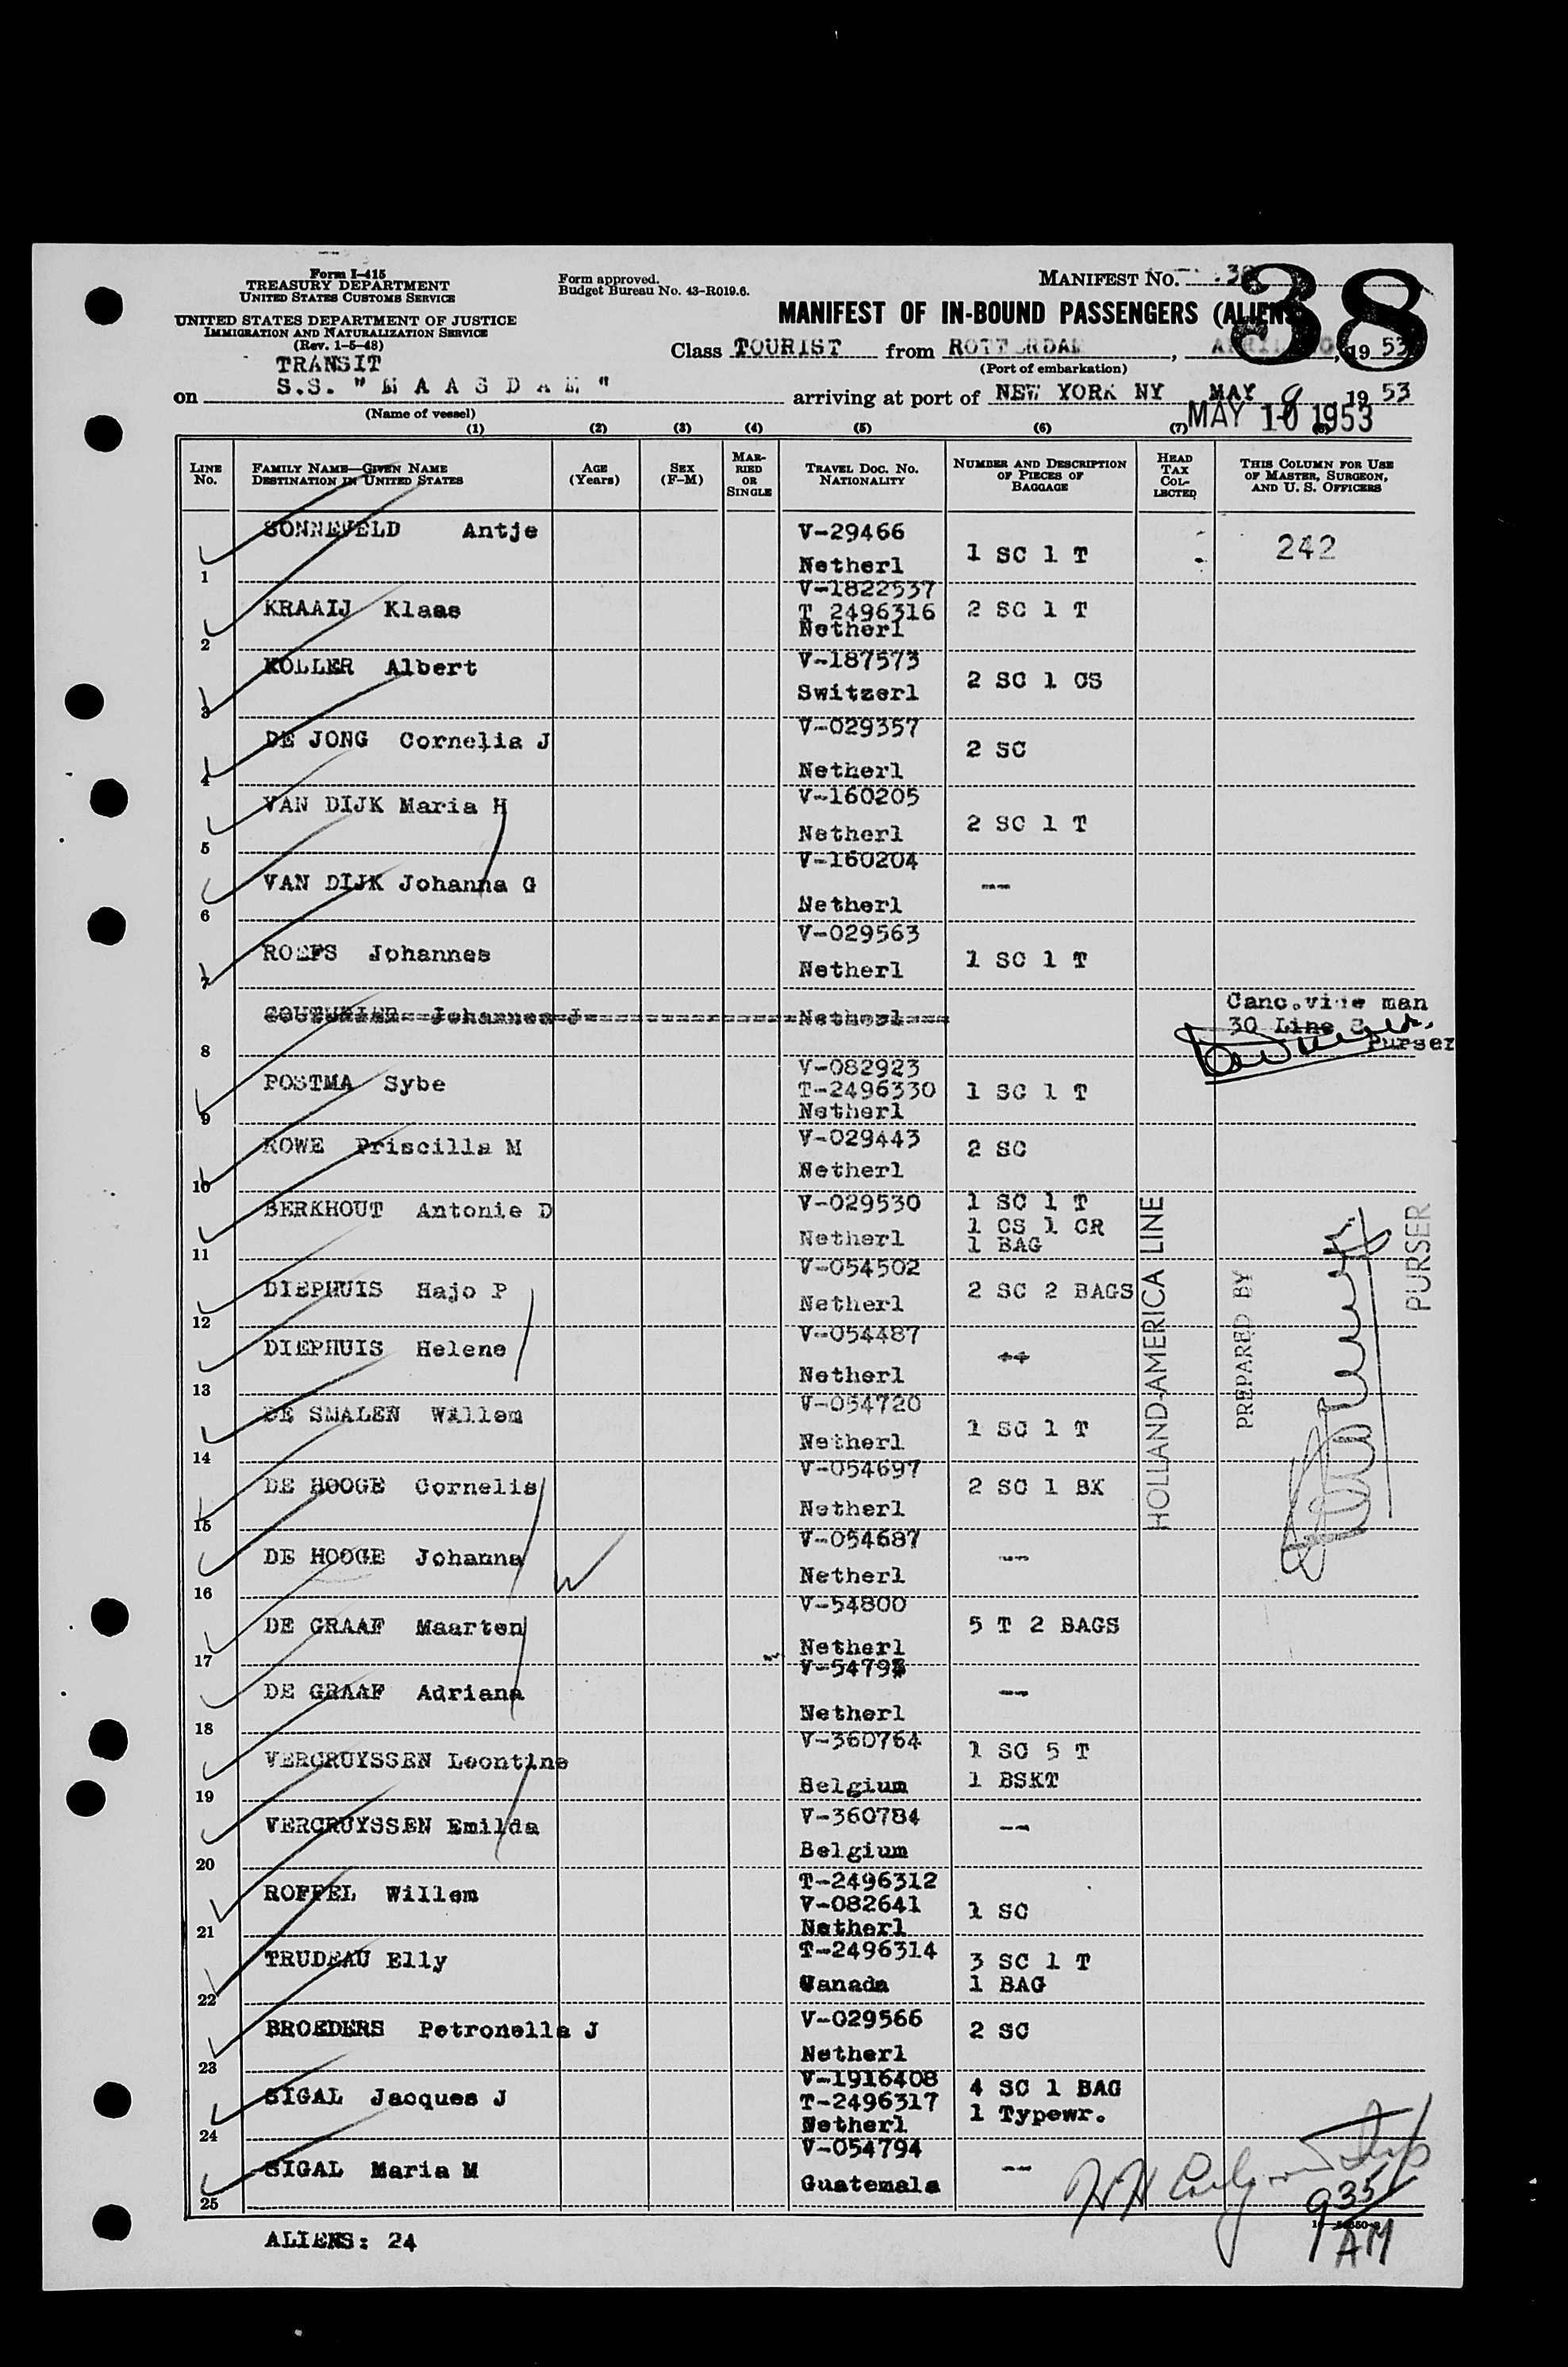 Form I-415
TREASURY DEPARTMENT
UNITED STATES CUSTOMS SERVICE
UNITED STATES DEPARTMENT OF JUSTICE
IMMIGRATION AND NATURALIZATION SERVICE
(Rev. 1-5-48)
TRANSIT
Form approved.
Budget Bureau No. 43-R019.6.
MANIFEST NO. 38
38
MANIFEST OF IN-BOUND PASSENGERS (ALIENS)
Class TOURIST from ROTTERDAM, APRIL , 19 53
(Port of embarkation)
on S.S. "M A A S D A M" arriving at port of NEW YORK NY MAY 9, 19 53
(Name of vessel)
MAY 10 1953
(1) (2) (3) (4) (5) (6) (7) (8)
LINE NO. FAMILY NAME—GIVEN NAME DESTINATION IN UNITED STATES AGE (Years) SEX (F-M) MARRIED OR SINGLE TRAVEL DOC. NO. NATIONALITY NUMBER AND DESCRIPTION OF PIECES OF BAGGAGE HEAD TAX COLLECTED THIS COLUMN FOR USE OF MASTER, SURGEON, AND U. S. OFFICERS
1 SONNEVELD Antje V-29466 Netherl 1 SC 1 T 242
2 KRAAIJ Klaas V-1822537 T 2496316 Netherl 2 SC 1 T
3 KOLLER Albert V-187573 Switzerl 2 SC 1 CS
4 DE JONG Cornelia J V-029357 Netherl 2 SC
5 VAN DIJK Maria H V-160205 Netherl 2 SC 1 T
6 VAN DIJK Johanna G V-160204 Netherl --
7 ROEFS Johannes V-029563 Netherl 1 SC 1 T
8 Johannes J Netherl Canc.vide man 30 Line 8 Purser
9 POSTMA Sybe V-082923 T-2496330 Netherl 1 SC 1 T
10 ROWE Priscilla M V-029443 Netherl 2 SC
11 BERKHOUT Antonie D V-029530 Netherl 1 SC 1 T 1 CS 1 CR 1 BAG
12 DIEPHUIS Hajo P V-054502 Netherl 2 SC 2 BAGS
13 DIEPHUIS Helene V-054487 Netherl --
14 DE SMALEN Willem V-054720 Netherl 1 SC 1 T
15 DE HOOGE Cornelis V-054697 Netherl 2 SC 1 BX
16 DE HOOGE Johanna V-054687 Netherl --
17 DE GRAAF Maarten V-54800 Netherl 5 T 2 BAGS
18 DE GRAAF Adriana Netherl --
19 VERCRUYSSEN Leontine V-360764 Belgium 1 SC 5 T 1 BSKT
20 VERCRUYSSEN Emilda V-360784 Belgium --
21 ROFFEL Willem T-2496312 V-082641 Netherl 1 SC
22 TRUDEAU Elly T-2496314 Canada 3 SC 1 T 1 BAG
23 BROEDERS Petronella J V-029566 Netherl 2 SC
24 SIGAL Jacques J V-1916408 T-2496317 Netherl 4 SC 1 BAG 1 Typewr.
25 SIGAL Maria M V-054794 Guatemala --
HOLLAND-AMERICA LINE
PREPARED BY
PURSER
935
AM
ALIENS: 24